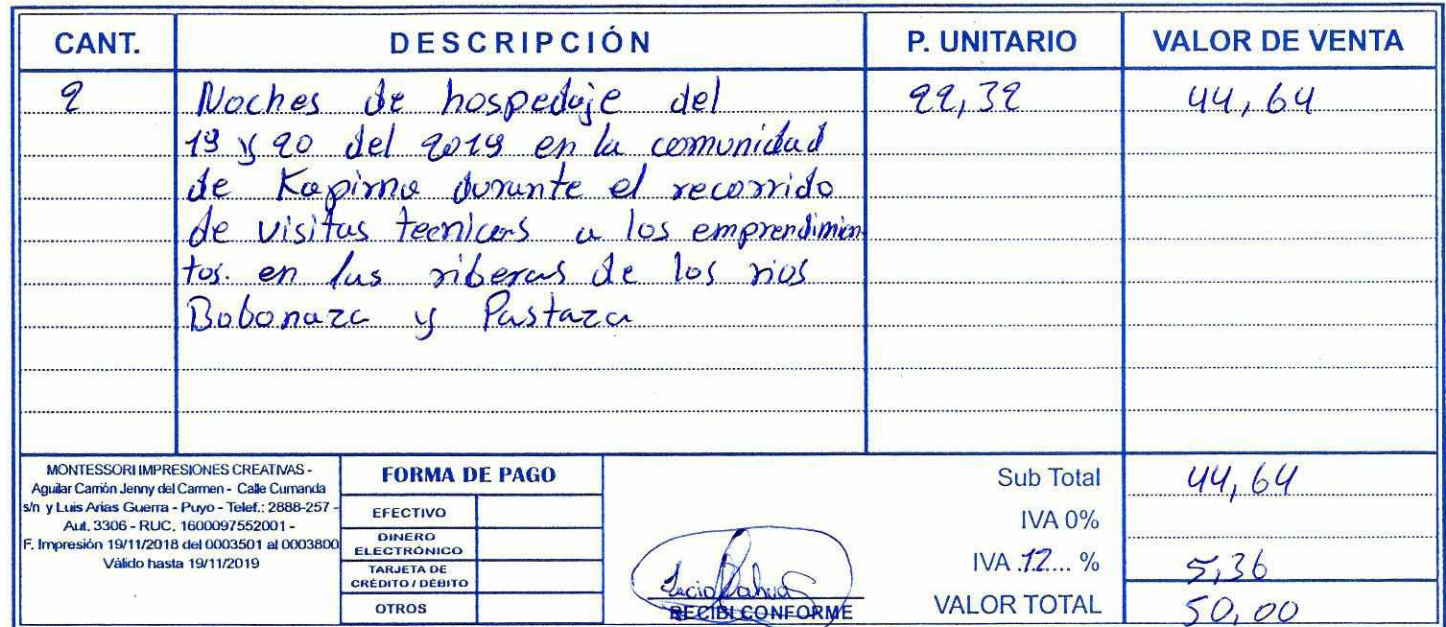 CANT. DESCRIPCIÓN P. UNITARIO VALOR DE VENTA
2 Noches de hospedaje del 22,32 44,64
19 y 20 del 2019 en la comunidad
de Kapirna durante el recorrido
de visitas tecnicas a los emprendimien
tos. en las riberas de los rios
Bobonaza y Pastaza
MONTESSORI IMPRESIONES CREATIVAS -
Aguilar Carrión Jenny del Carmen - Calle Cumanda
s/n y Luis Arias Guerra - Puyo - Telef.: 2888-257 -
Aut. 3306 - RUC. 1600097552001 -
F. Impresión 19/11/2018 del 0003501 al 0003800
Válido hasta 19/11/2019
FORMA DE PAGO
EFECTIVO
DINERO
ELECTRÓNICO
TARJETA DE
CRÉDITO / DÉBITO
OTROS
RECIBI CONFORME
Sub Total 44,64
IVA 0%
IVA .12... % 5,36
VALOR TOTAL 50,00